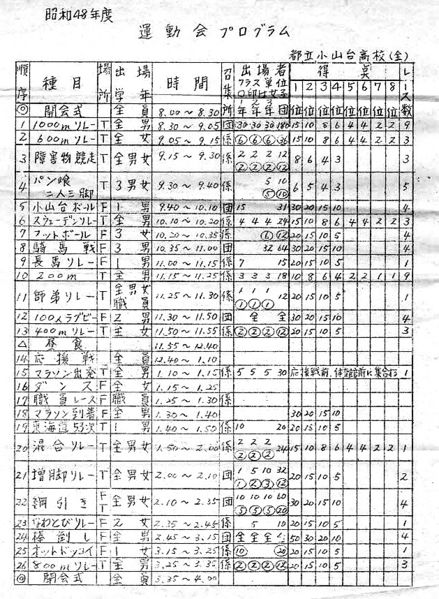 昭和48年度
運動会プログラム
都立小山台高校(全)
順序 種目 場所 出場学年 時間 召集所 出場者 プラス単位 ○印は女子 1年 2年 3年 団 得点 1位 2位 3位 4位 5位 6位 7位 8位 レース数
◎ 開会式 全員 8.00~8.30
1 1000mリレー T 全男 8.30~9.05 団 30 30 30 180 15 10 8 6 4 4 2 2 9
2 600mリレー T 全女 9.05~9.15 係 ⑥ ⑥ ⑥ 36 15 10 8 6 4 4 2 2 3
3 障害物競走 T 全男女 9.15~9.30 係 2 2 2 12 ② ② ② ⑫ 8 6 4 3 3
4 パン喰二人三脚 T 3男女 9.30~9.40 係 5 10 ⑤ ⑩ 6 5 4 3 5
5 小山台ボール F 1男 9.40~10.10 団 15 31 20 15 10 5 4
6 スウェーデンリレー T 全男 10.10~10.20 係 4 4 4 24 15 10 8 6 4 4 2 2 3
7 フットボール F 3女 10.20~10.35 係 ⑥ ⑫ 20 15 10 5 4
8 騎馬戦 F 3男 10.35~11.00 団 32 64 30 20 15 10 4
9 長馬リレー F 1男 11.00~11.15 係 7 15 20 15 10 5 1
10 200m T 全男 11.15~11.25 係 3 3 3 18 10 8 6 4 2 2 1 1 9
11 師弟リレー T 全男女 職員 11.25~11.30 係 1 1 1 12 ① ① ① 20 15 10 5 1
12 100人ラグビー F 2男 11.30~11.50 団 全 全 30 20 15 10 4
13 400mリレー T 全女 11.50~11.55 係 ② ② ② ⑫ 20 15 10 5 3
△ 昼食 11.55~12.40
14 応援戦 全員 12.40~1.10
15 マラソン出発 T 全男 1.10~1.15 係 5 5 5 30 応援戦前、体育館前に集合する 1
16 ダンス F 全女 1.15~1.25
17 職員レース F 職員 1.25~1.30 係
18 マラソン到着 F 全男 1.30~1.40 30 20 15 10
19 東海道53次 T 1男 1.40~1.50 係 10 20 20 15 10 5 1
20 混合リレー T 全男女 1.50~2.00 係 2 2 2 24 ② ② ② 15 10 8 6 4 4 2 2 1
21 増脚リレー T 全男女 2.00~2.10 団 1 5 10 32 ① ② ③ ⑫ 20 15 10 5 2
22 綱引き F T 全男女 2.10~2.35 団 10 10 10 60 ⑤ ⑤ ⑤ ⑳ 30 20 15 10 4
23 なわとびリレー F 2女 2.35~2.45 係 5 10 20 15 10 5 1
24 棒倒し F 全男 2.45~3.15 団 全 全 全 50 30 20 15 4
25 オットドッコイ F 1女 3.15~3.25 係 ⑩ ⑳ 20 15 10 5 1
26 800mリレー T 全男女 3.25~3.35 係 ② ② ② ⑫ 20 15 10 5 3
◎ 閉会式 全員 3.35~4.00